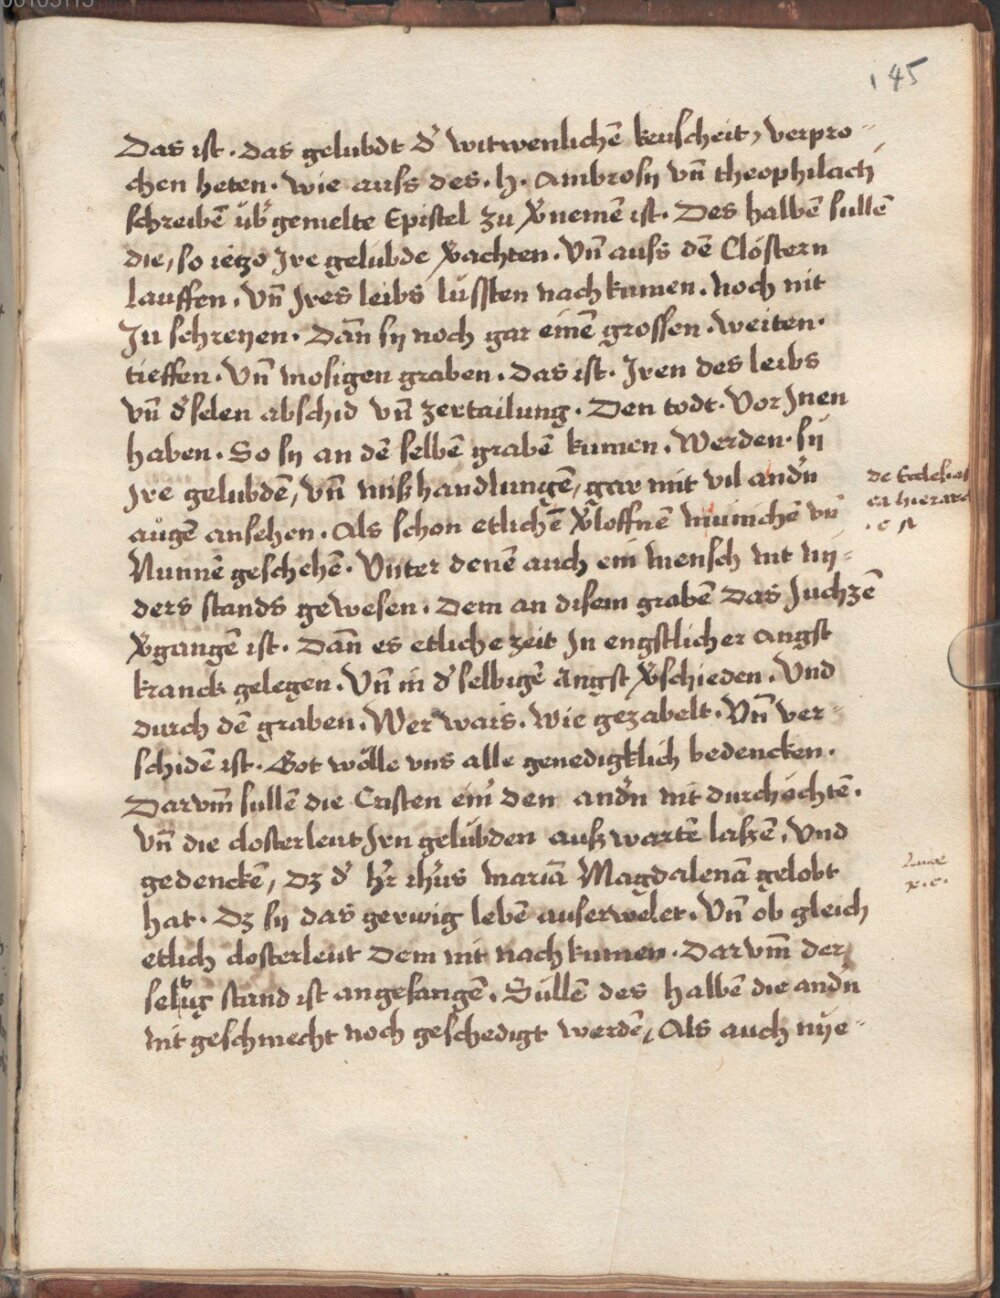 145
Das ist. das gelubdt d' witwenlichē keuscheit, verpro-
chen heten. wie auss des. h. Ambrosij vn̄ theophilacti
schreibē üb' gemelte Epistel zu v'nemē ist. Des halbē sullē
die, so ietzo Ire gelubde v'achten. Vn̄ auss dē Clöstern
lauffen. Vn̄ Ires leibs lüssten nach kumen. noch nit
Ju schreyen. Dan̄ sij noch gar einē grossen. weiten.
tieffen. Vn̄ mosigen graben. das ist. Iren des leibs
vn̄ d' selen abschid vn̄ zertailung. Den todt. Vor Inen
haben. So sij an dē selbē grabē kumen. Werden. sij
Ire gelubdē, vn̄ mißhandlungē, gar mit vil and'n
augē ansehen. Als schon etlichē v'loffnē münichē vn̄
Nunnē geschehē. Vnter denē auch ein mensch nit nij-
ders stands gewesen. Dem an disem grabē das Juchzē
v'gangē ist. Dan̄ es etliche zeit In engstlicher angst
kranck gelegen. Vn̄ in d' selbigē angst v'schieden. Vnd
durch dē graben. Wer wais. wie gezabelt. Vn̄ ver-
schidē ist. Got wölle vns alle genedigklich bedencken.
Darvm̄ sullē die Cristen ein' den and'n nit durchechtē.
Vn̄ die closterleut Irn gelübden auß wartē laßē. Vnd
gedenckē, dz d' h'r ih'us mariā Magdalenā gelobt
hat. dz sij das gerwig lebē auserwelet. Vn̄ ob gleich
etlich closterleut dem nit nach kumen. Darvm̄ der
selbig stand ist angefangē. Süllē des halbē die and'n
nit geschmecht noch geschedigt werdē, Als auch nije-
de Ecclesiast
ca hierarc
Luce
x. c.